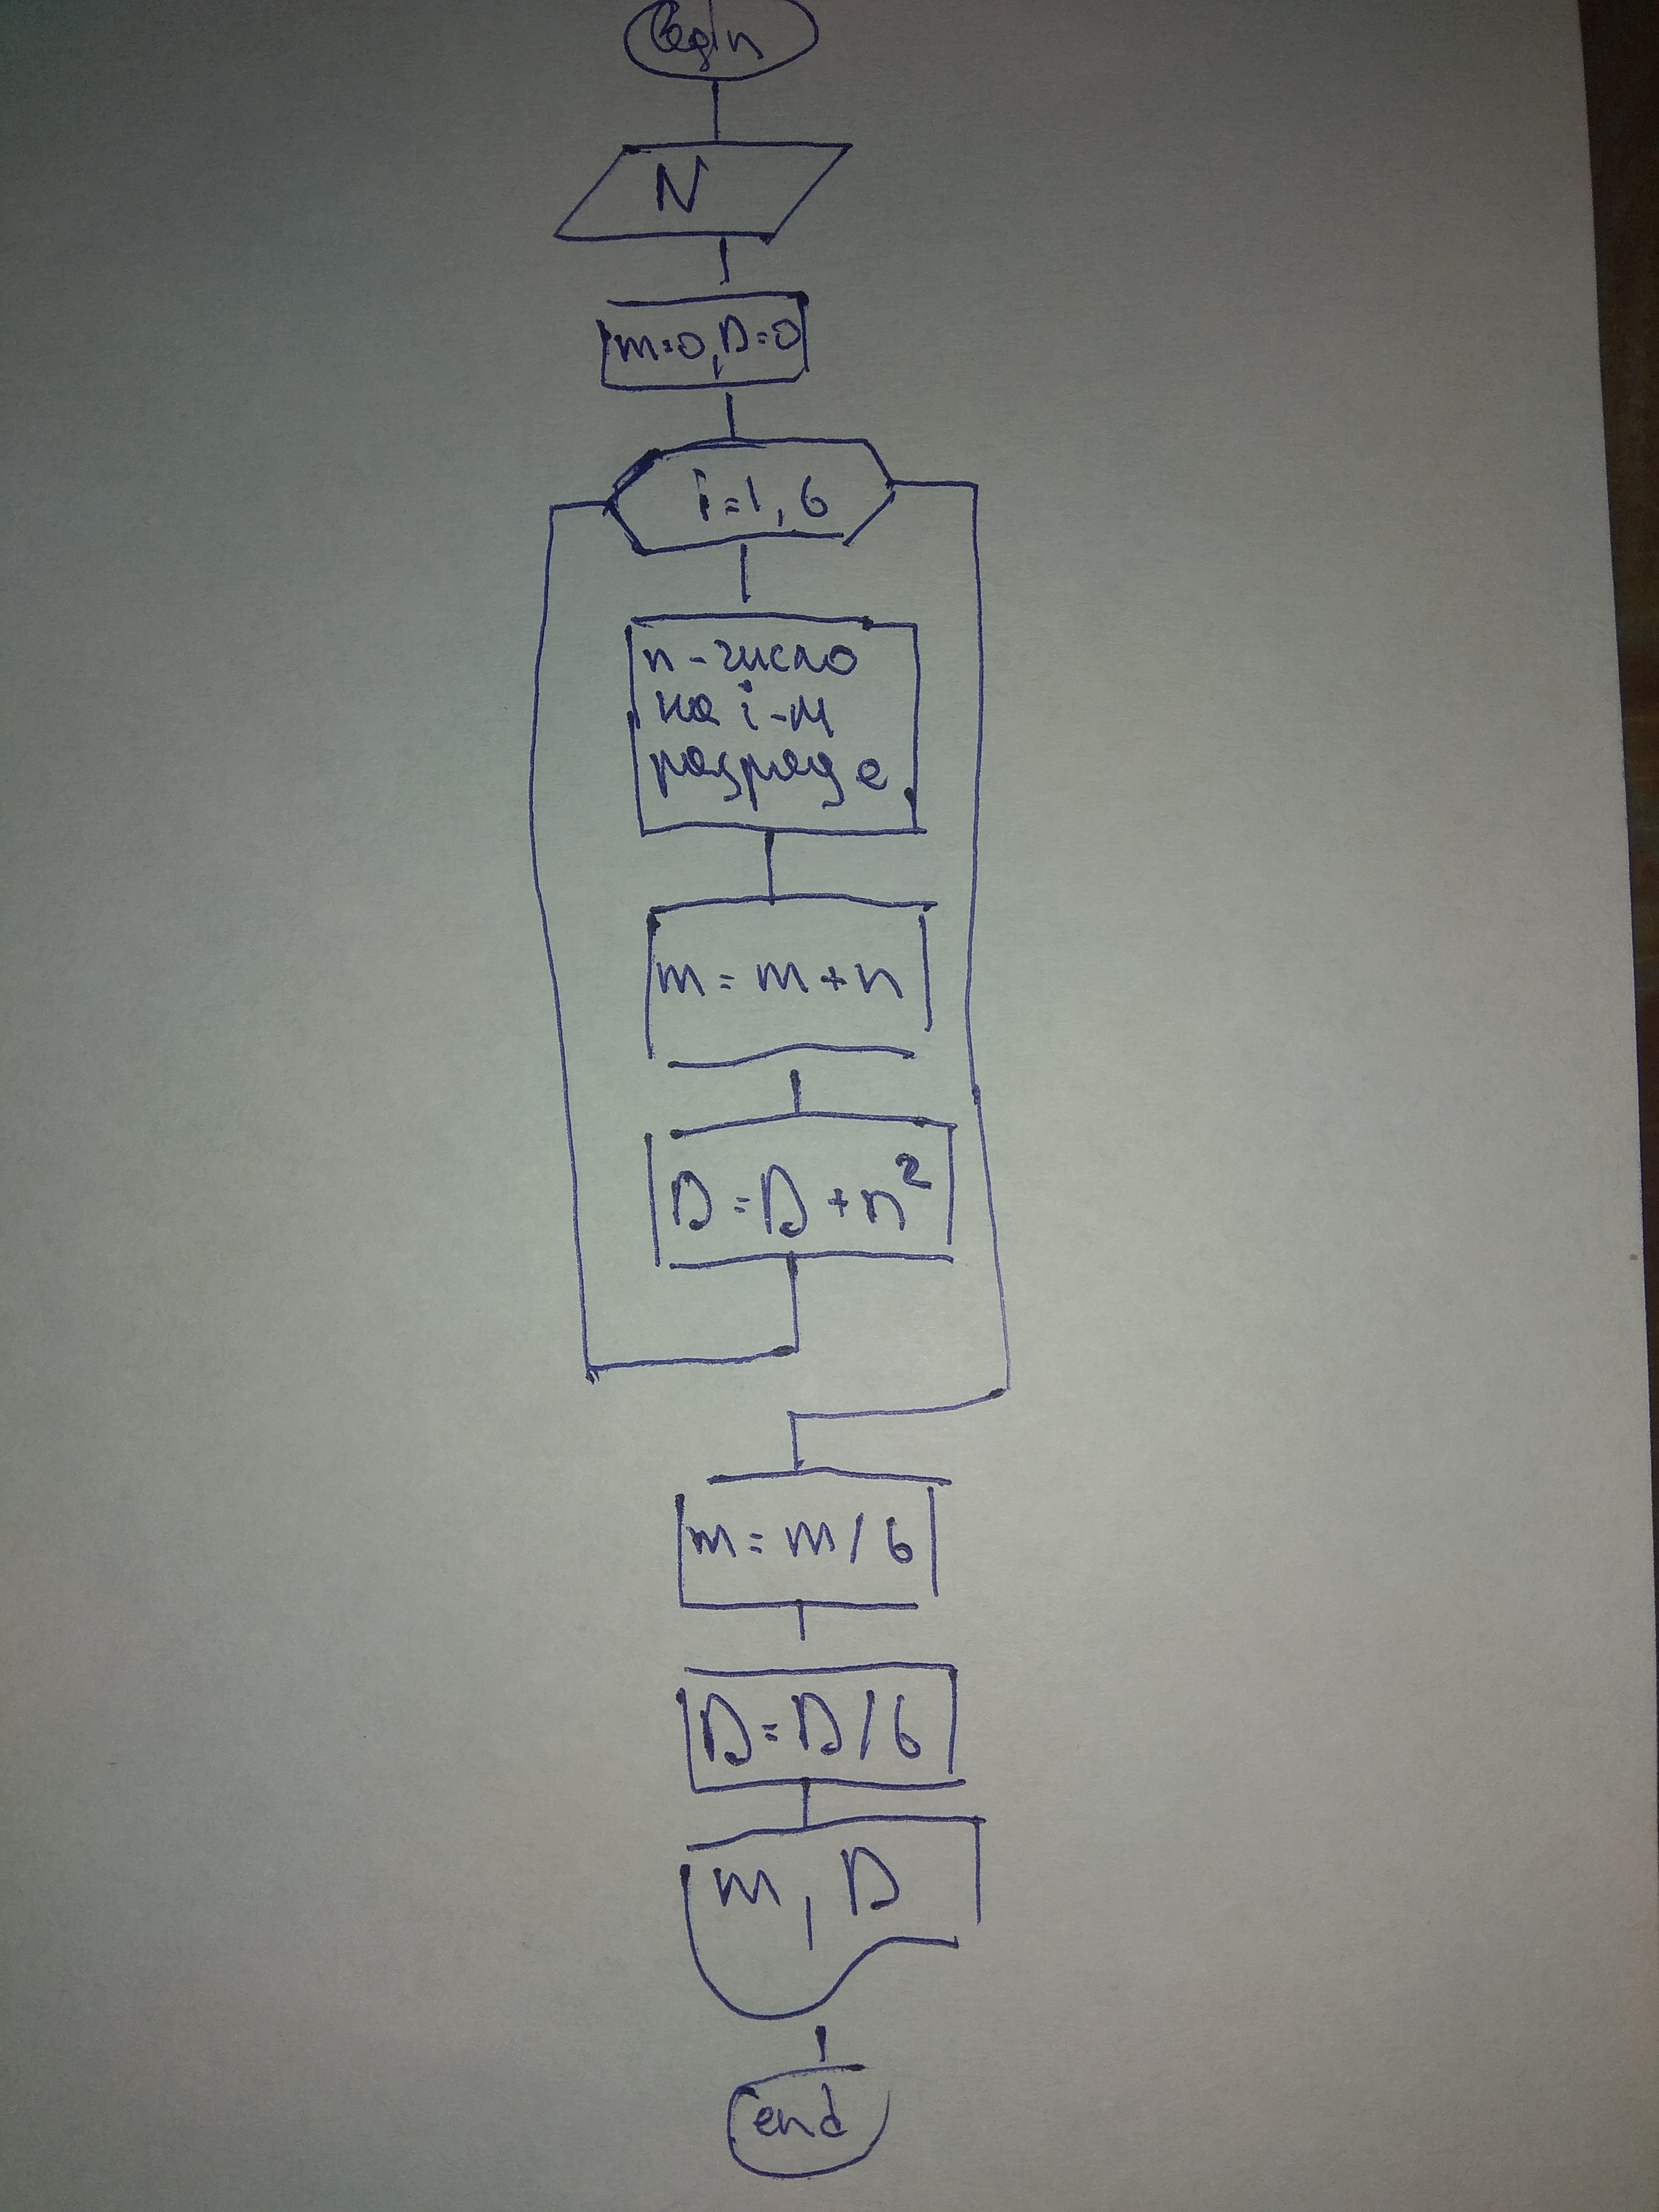 Begin
N
m=0, D=0
i=1, 6
n-число
на i-м
разряде
m=m+n
D=D+n²
m=m/6
D=D/6
m, D
end